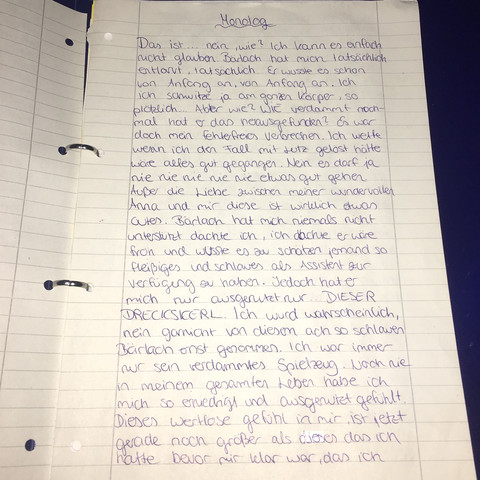 Monolog
Das ist... nein, wie? Ich kann es einfach
nicht glauben Bärlach hat mich tatsächlich
entlarvt, tatsächlich. Er wusste es schon
von Anfang an, von Anfang an. Ich
ich schwitze ja am ganzen Körper, so
plötzlich... Aber wie? Wie verdammt noch-
mal hat er das herausgefunden? Es war
doch mein fehlerfreies verbrechen. Ich wette
wenn ich den Fall mit Lutz gelöst hätte
wäre alles gut gegangen. Nein es darf ja
nie nie nie nie nie etwas gut gehen
Außer die Liebe zwischen meiner wundervollen
Anna und mir diese ist wirklich etwas
Gutes. Bärlach hat mich niemals nicht
unterstützt dachte ich, ich dachte er wäre
froh und wüsste es zu schätzen jemand so
fleißiges und schlaues als Assistent zur
verfügung zu haben. Jedoch hat er
mich nur ausgenutzt nur... DIESER
DRECKSKERL. Ich wurd wahrscheinlich,
nein garnicht von diesem ach so schlauen
Bärlach ernst genommen. Ich war immer
nur sein verdammtes Spielzeug. Noch nie
in meinem gesamten Leben habe ich
mich so erniedrigt und ausgenutzt gefühlt.
Dieses wertlose gefühl in mir, ist jetzt
gerade noch größer als dieses das ich
hatte bevor mir klar war, das ich